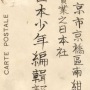 京市京橋區南紺
業之日本社
日本少年編輯
CARTE POSTALE